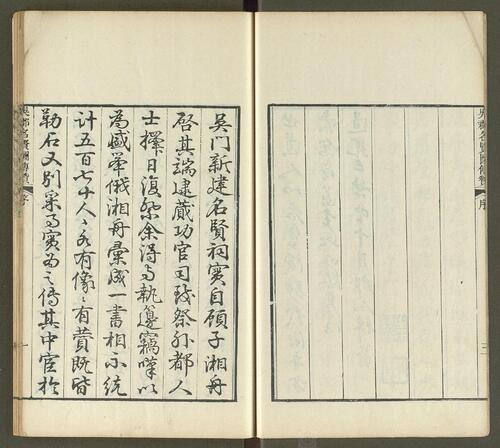 吳郡名賢圖傳贊
序
吳門新建名賢祠實自顧子湘舟
啓其端建蕆功官司致祭外都人
士擇日復祭余得与執籩竊嘆以
為盛舉俄湘舟彙成一書相示統
計五百七十人人各有像像有贊既皆
勒石又別采事實為之傳其中宦於
吳郡名賢圖傳贊
序
一